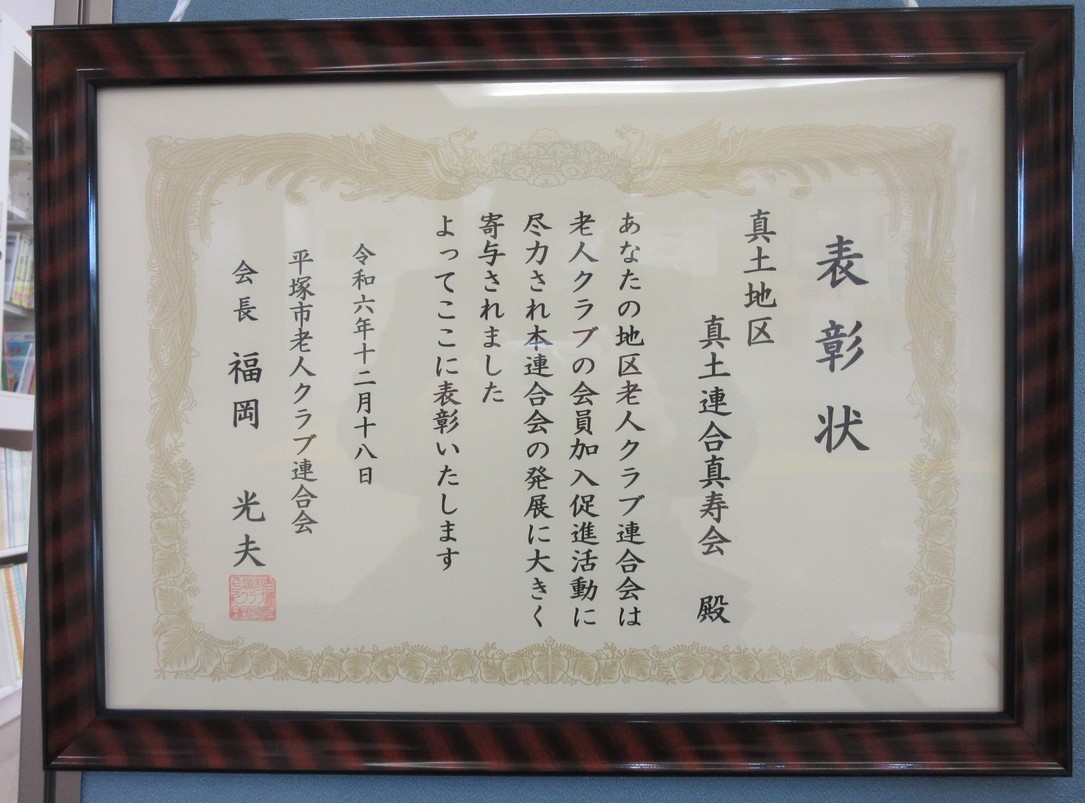 表彰状
真土地区
真土連合真寿会 殿
あなたの地区老人クラブ連合会は
老人クラブの会員加入促進活動に
尽力され本連合会の発展に大きく
寄与されました
よってここに表彰いたします
令和六年十二月十八日
平塚市老人クラブ連合会
会長 福岡 光夫